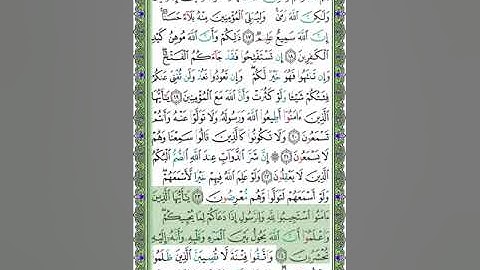 وَلَٰكِنَّ ٱللَّهَ رَمَىٰ وَلِيُبْلِيَ ٱلْمُؤْمِنِينَ مِنْهُ بَلَآءً حَسَنًا
إِنَّ ٱللَّهَ سَمِيعٌ عَلِيمٌ ١٧ ذَٰلِكُمْ وَأَنَّ ٱللَّهَ مُوهِنُ كَيْدِ
ٱلْكَٰفِرِينَ ١٨ إِن تَسْتَفْتِحُوا۟ فَقَدْ جَآءَكُمُ ٱلْفَتْحُ
وَإِن تَنتَهُوا۟ فَهُوَ خَيْرٌ لَّكُمْ وَإِن تَعُودُوا۟ نَعُدْ وَلَن تُغْنِىَ عَنكُمْ
فِئَتُكُمْ شَيْـًٔا وَلَوْ كَثُرَتْ وَأَنَّ ٱللَّهَ مَعَ ٱلْمُؤْمِنِينَ ١٩ يَٰٓأَيُّهَا
ٱلَّذِينَ ءَامَنُوٓا۟ أَطِيعُوا۟ ٱللَّهَ وَرَسُولَهُۥ وَلَا تَوَلَّوْا۟ عَنْهُ وَأَنتُمْ
تَسْمَعُونَ ٢٠ وَلَا تَكُونُوا۟ كَٱلَّذِينَ قَالُوا۟ سَمِعْنَا وَهُمْ
لَا يَسْمَعُونَ ٢١ إِنَّ شَرَّ ٱلدَّوَآبِّ عِندَ ٱللَّهِ ٱلصُّمُّ ٱلْبُكْمُ
ٱلَّذِينَ لَا يَعْقِلُونَ ٢٢ وَلَوْ عَلِمَ ٱللَّهُ فِيهِمْ خَيْرًا لَّأَسْمَعَهُمْ
وَلَوْ أَسْمَعَهُمْ لَتَوَلَّوا۟ وَّهُم مُّعْرِضُونَ ٢٣ يَٰٓأَيُّهَا ٱلَّذِينَ
ءَامَنُوا۟ ٱسْتَجِيبُوا۟ لِلَّهِ وَلِلرَّسُولِ إِذَا دَعَاكُمْ لِمَا يُحْيِيكُمْ
وَٱعْلَمُوٓا۟ أَنَّ ٱللَّهَ يَحُولُ بَيْنَ ٱلْمَرْءِ وَقَلْبِهِۦ وَأَنَّهُۥٓ إِلَيْهِ
تُحْشَرُونَ ٢٤ وَٱتَّقُوا۟ فِتْنَةً لَّا تُصِيبَنَّ ٱلَّذِينَ ظَلَمُوا۟